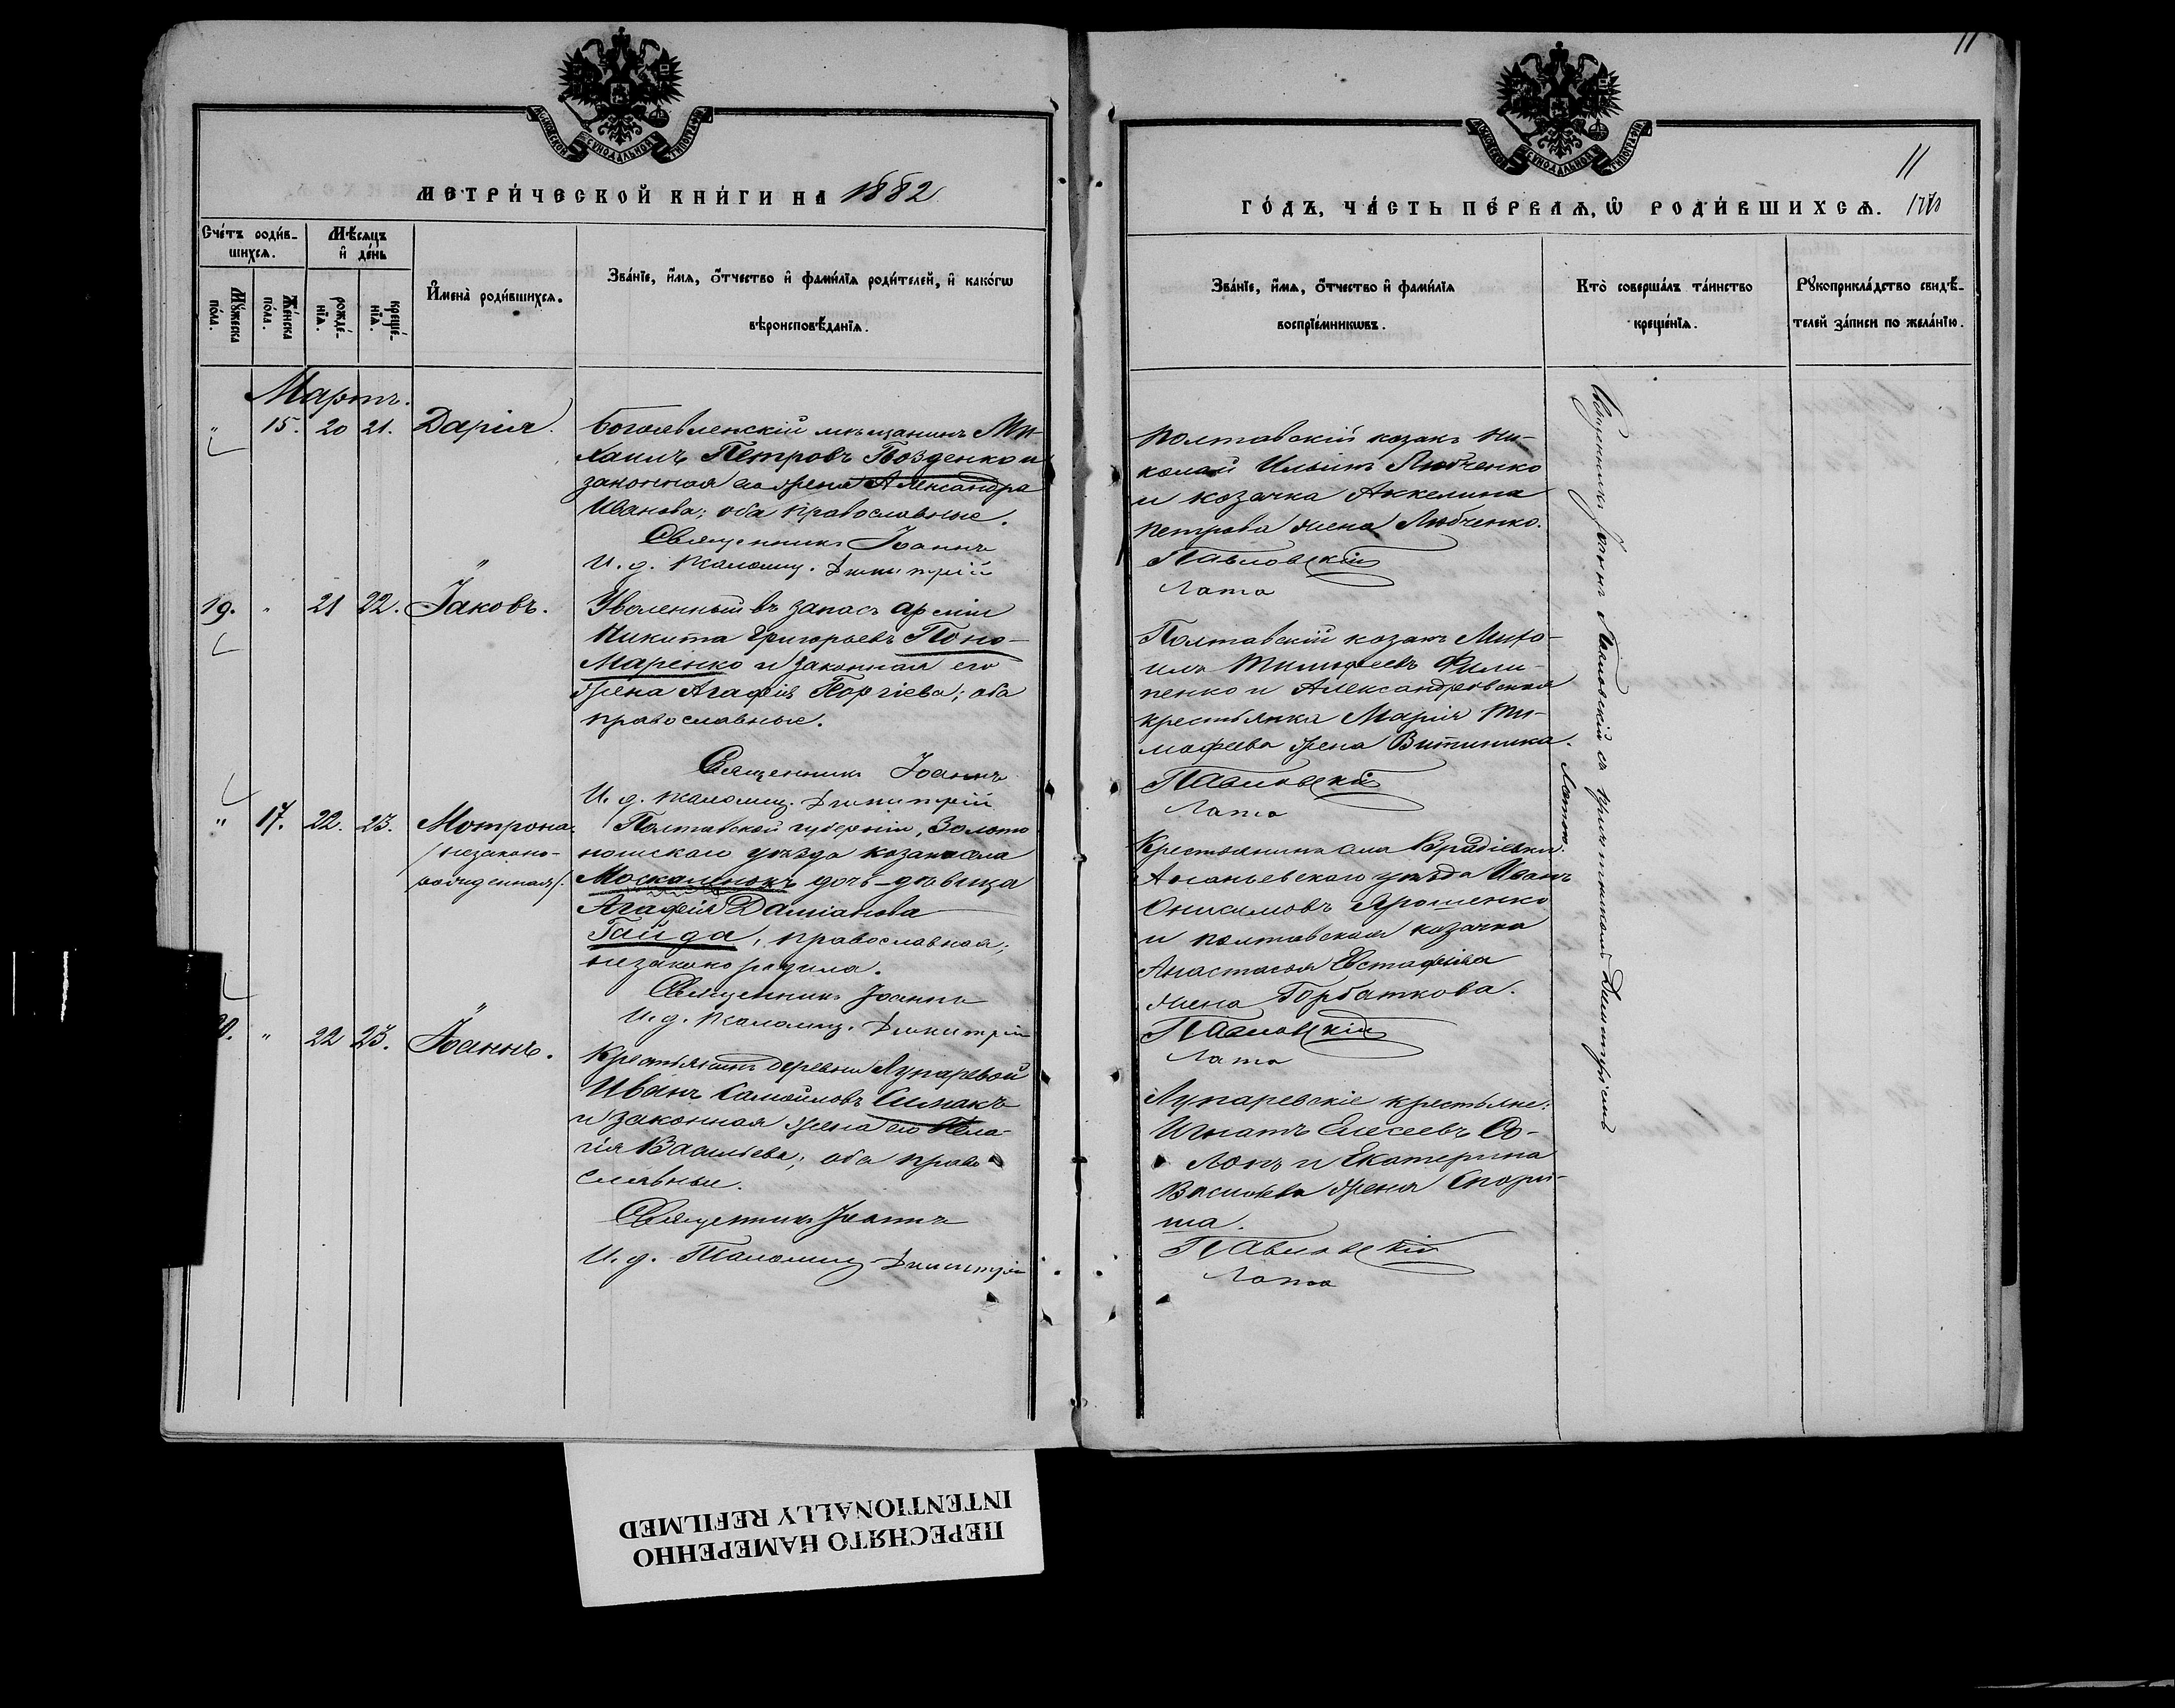 МОСКОВСКОЙ СѴНОДАЛЬНОЙ ТИПОГРАФІИ
МЕТРИ́ЧЕСКОЙ КНИ́ГИ НА 1882
Сче́тъ роди́в-
шихсѧ.
Мѣ́сѧцъ
и҆ де́нь
Мꙋ́жеска по́ла.
Же́нска по́ла.
рожде́-нїѧ.
креще́-нїѧ.
И҆мена̀ роди́вшихсѧ.
Зва́нїе, и҆́мѧ, ѻ҆́тчество и҆ фами́лїѧ роди́телей, и҆ како́гѡ
вѣроисповѣ́данїѧ.
Мартъ.
" 15. 20 21. Дарія.
Богоявленскій мѣщанинъ Ми-
хаилъ Петровъ Позденко и
законная его жена Александра
Иванова; оба православные.
Священникъ Іоаннъ
И. д. псаломщ. Димитрій
19. " 21 22. Іаковъ.
Уволенный въ запасъ арміи
Никита Григорьевъ Поно-
маренко и законная его
жена Агафія Георгіева; оба
православные.
Священникъ Іоаннъ
И. д. псаломщ. Димитрій
" 17. 22. 23. Мотрона
/незаконо-
рожденная/.
Полтавской губерніи, Золото
ношскаго уѣзда козака села
Москаленокъ дочь-дѣвица
Агафія Даміанова
Гайда, православная;
незаконо родила.
Священникъ Іоаннъ
И. д. псаломщ. Димитрій
20. " 22 23. Іоаннъ.
Крестьянинъ деревни Лупаревой
Иванъ Самойловъ Симакъ
и законная жена его Пела-
гія Васильева; оба право
славные.
Священникъ Іоаннъ
И. д. Псаломщ Димитрій
11
МОСКОВСКОЙ СѴНОДАЛЬНОЙ ТИПОГРАФІИ
11
ГО́ДЪ, ЧА́СТЬ ПЕ́РВАѦ, Ѡ҆ РОДИ́ВШИХСѦ.
Зва́нїе, и҆́мѧ, ѻ҆́тчество и҆ фами́лїѧ
воспрїе́мникѡвъ.
Кто̀ соверша́лъ та́инство
креще́нїѧ.
Рꙋкоприкла́дство свидѣ́-
телей за́писи по жела́нїю.
Полтавскій козакъ Ни-
колай Ильинъ Любченко
и козачка Аккелина
Петрова жена Любченко.
Павловскій
Лата
Полтавскій козакъ Миха-
илъ Тимофеевъ Фили-
пенко и Александровская
крестьянка Марія Ти-
мофеева жена
Павловскій
Лата
Крестьянинъ села
Ананьевскаго уѣзда Иванъ
Онисимовъ Ярошенко
и полтавская козачка
Анастасія Евстафіева
жена Горбаткова.
Павловскій
Лата
Лупаревскіе крестьяне:
Игнатъ Елесеевъ Со-
ломъ и Екатерина
Васильева жена
Павловскій
Лата
Священникъ Іоаннъ Павловскій съ причетникомъ Димитріемъ
Латою.
ПЕРЕСНЯТО НАМЕРЕННО
INTENTIONALLY REFILMED